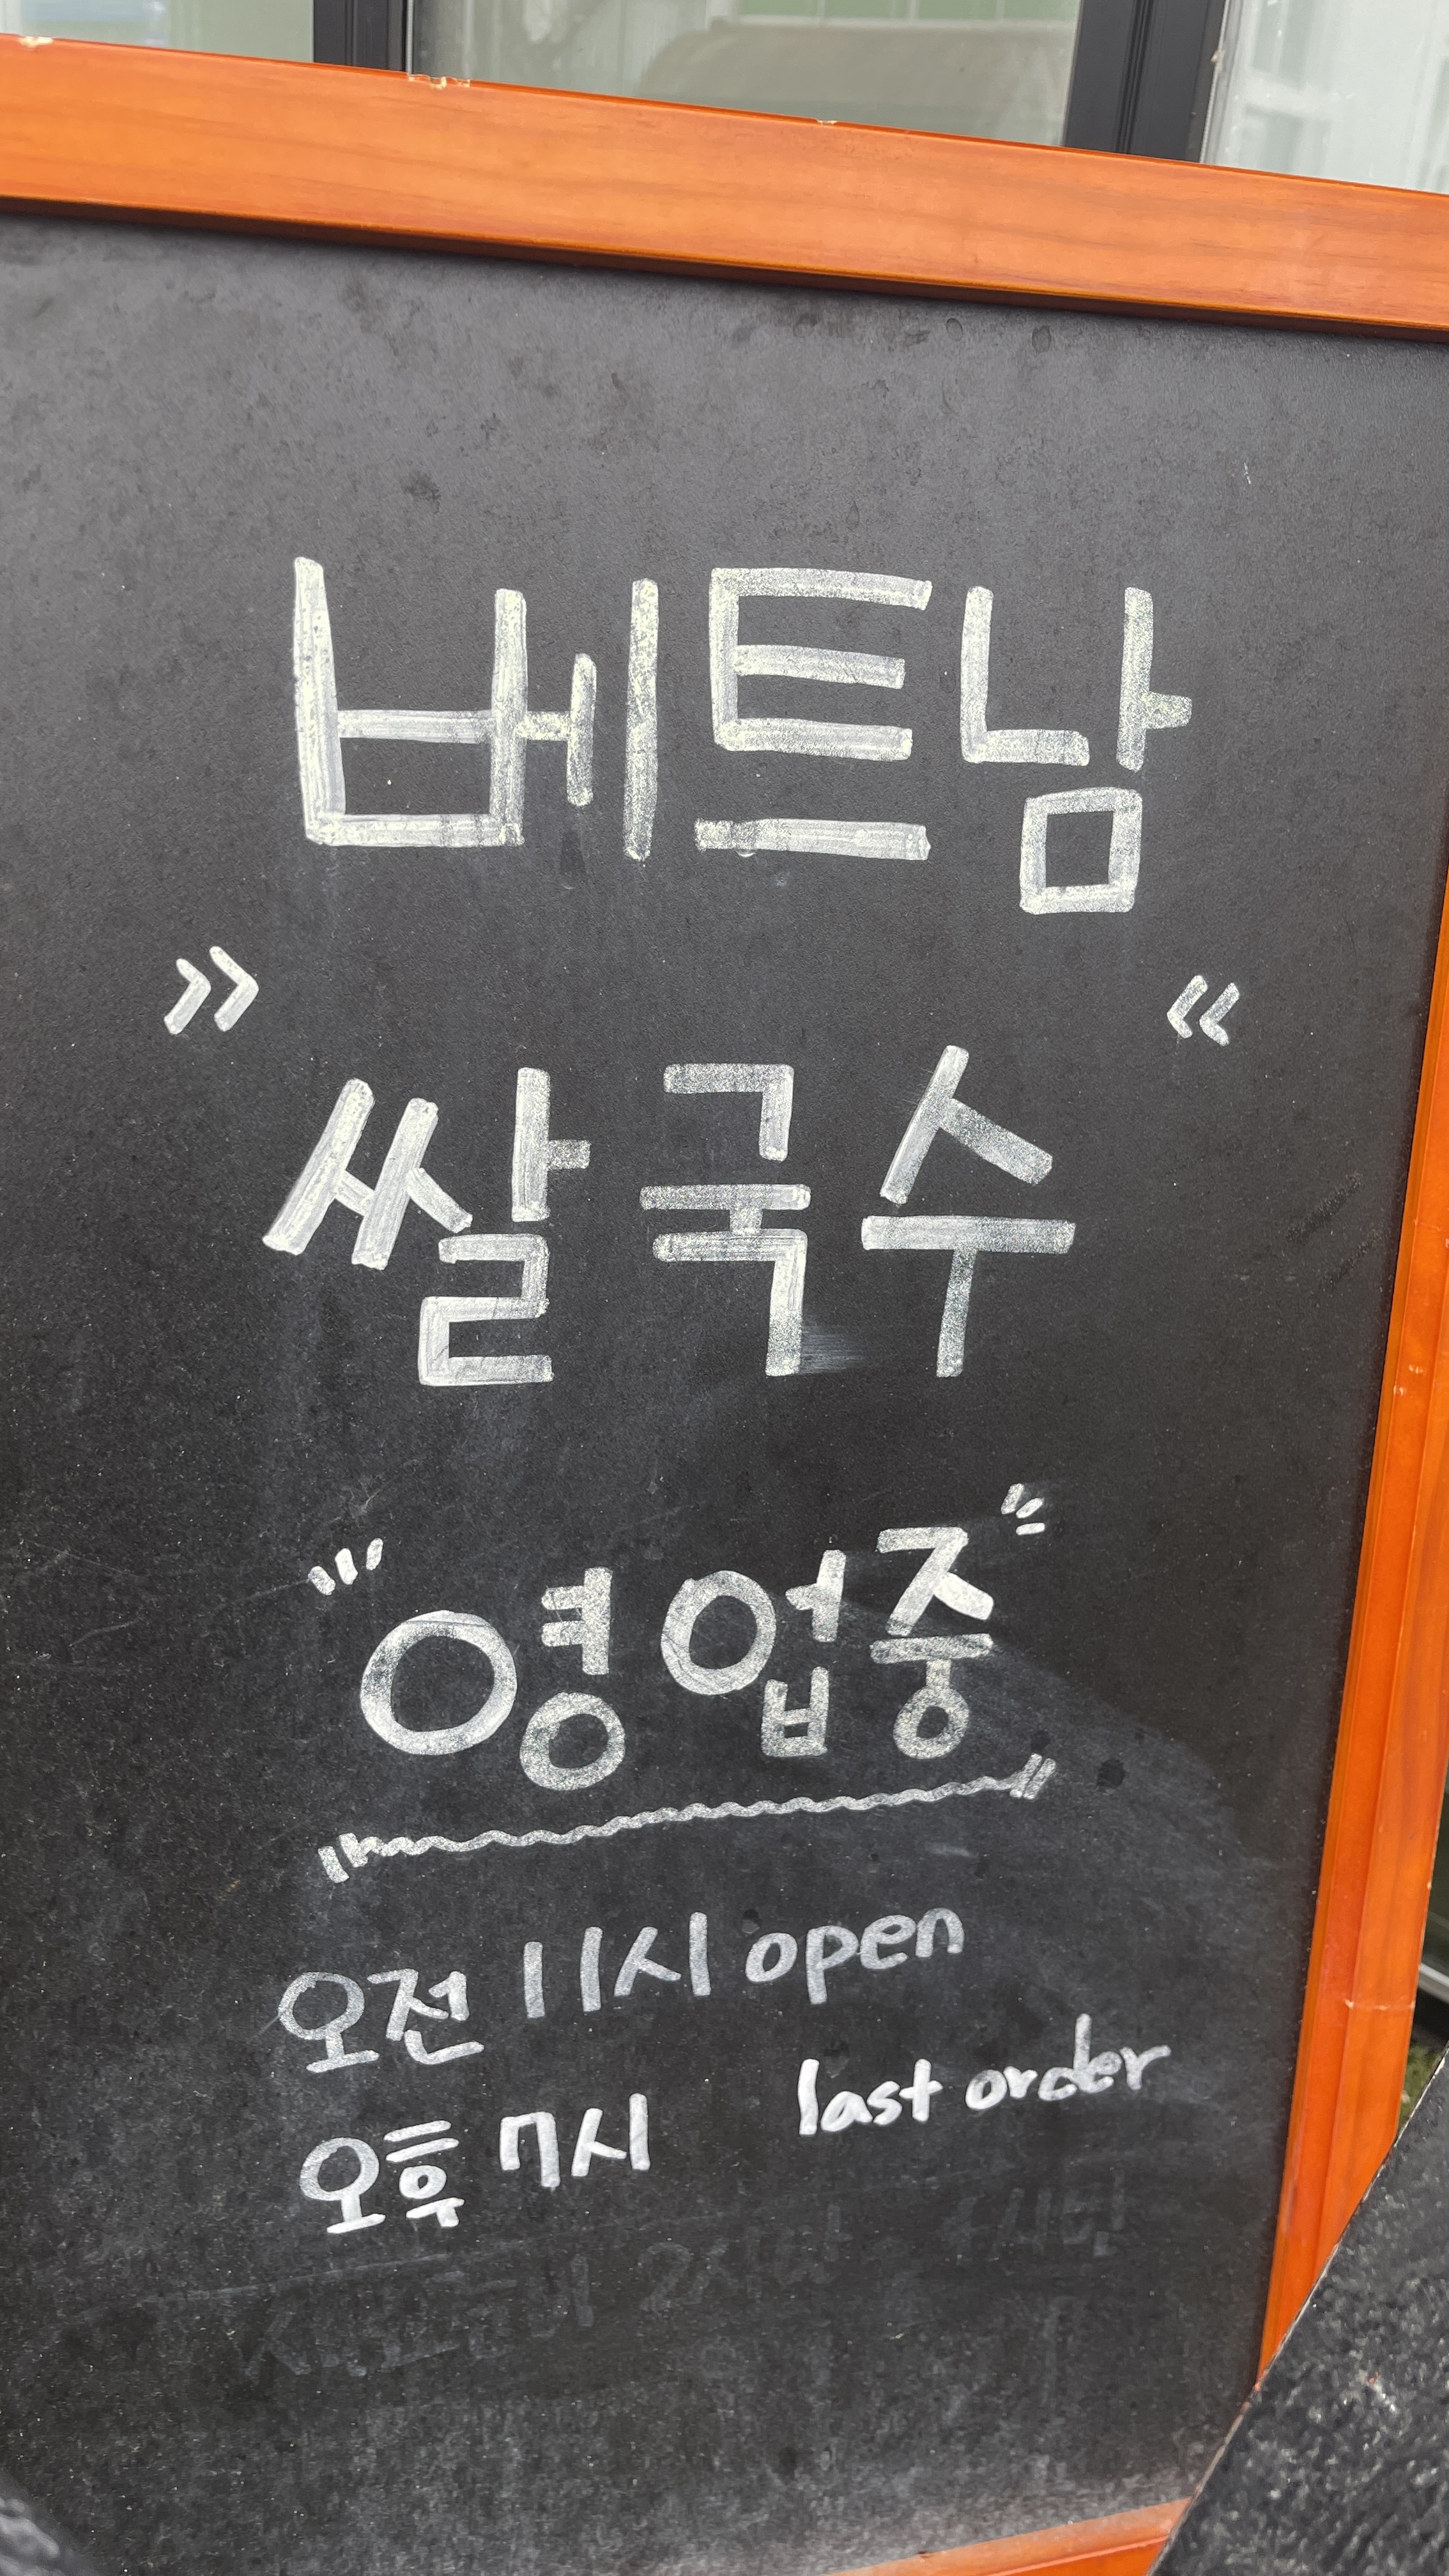 베트남
» «
쌀국수
영업중
오전 11시 open
오후 7시 last order